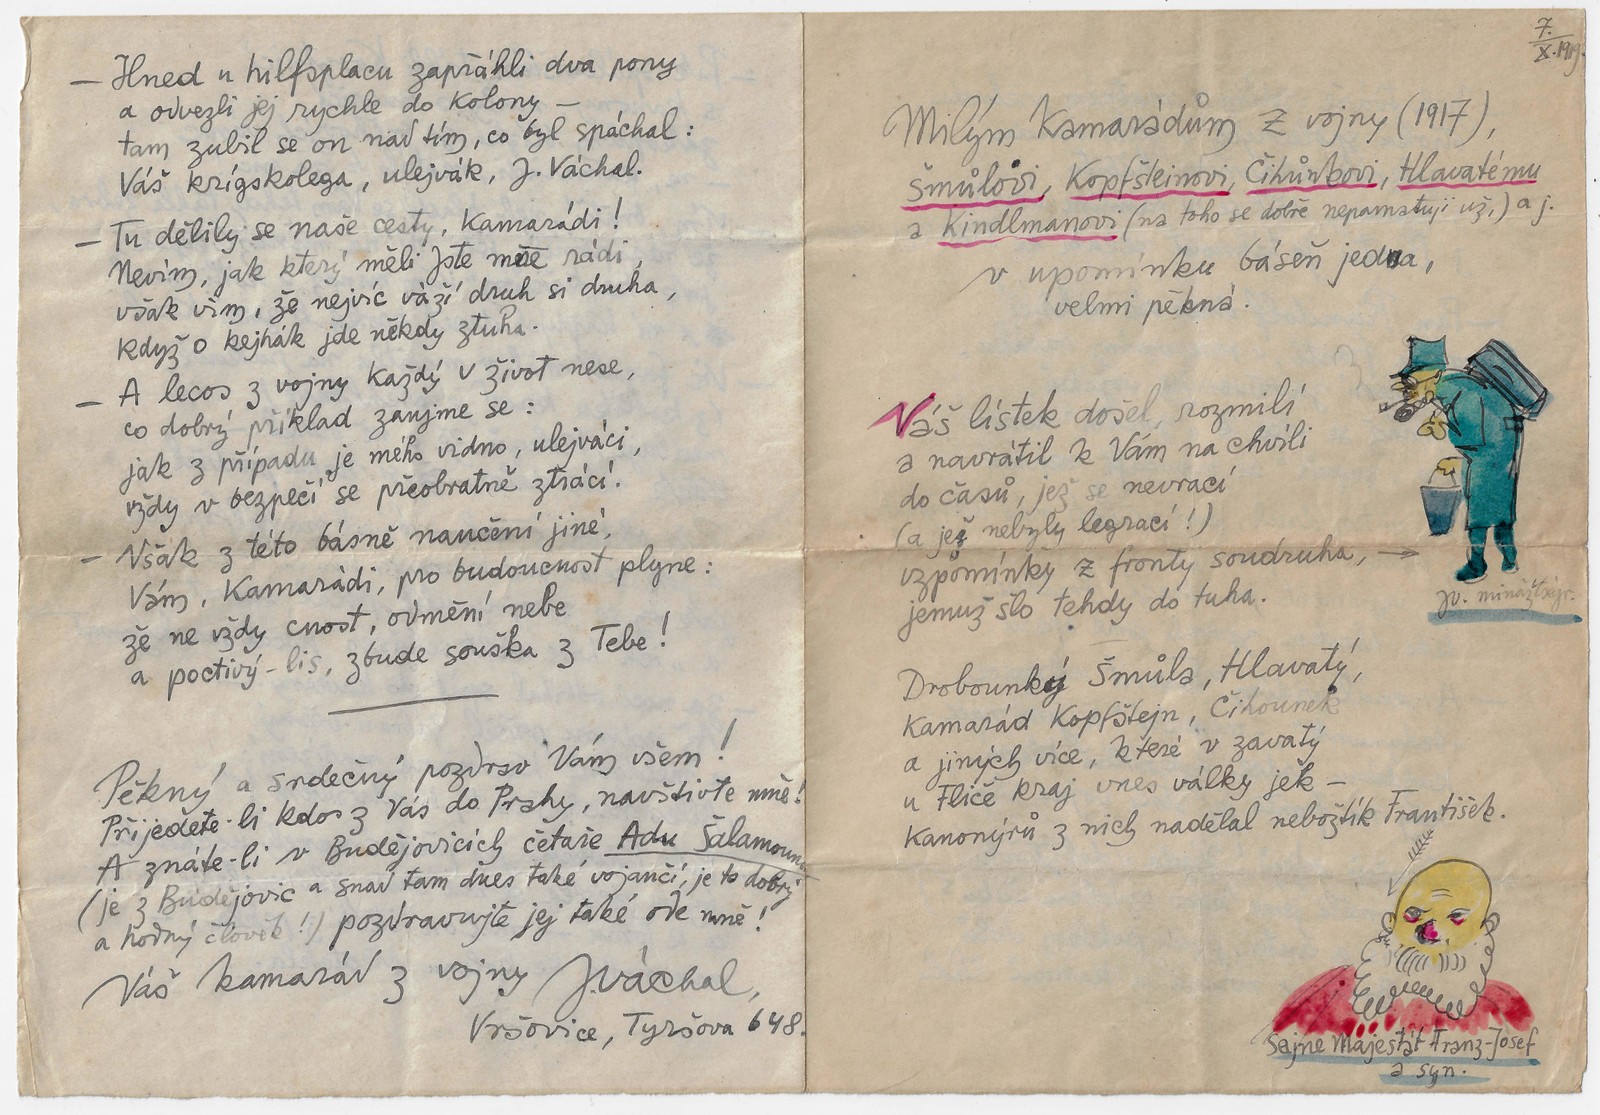 7.
X. 1919.
Milým Kamarádům z vojny (1917),
Šmůlovi, Kopfšteinovi, Čihůnkovi, Hlavatému
a Kindlmanovi (na toho se dobře nepamatuji už,) a j.
v upomínku báseň jedna,
velmi pěkná.
Váš lístek došel, rozmilí
a navrátil k Vám na chvíli
do časů, jež se nevrací
(a jež nebyly legrací!)
vzpomínky z fronty soudruha, →
jemuž šlo tehdy do tuha.
Jv.
Drobounký Šmůla, Hlavatý,
Kamarád Kopfštejn, Čihounek
a jiných více, které v zavatý
u Fliče kraj vnes války jek —
Kanonýrů z nich nadělal nebožtík František.
Sajne Majestät Franz-Josef
a syn.
— Hned u hilfsplacu zapřáhli dva pony
a odvezli jej rychle do Kolony —
tam zubil se on nad tím, co byl spáchal:
Váš krígskolega, ulejvák, J. Váchal.
— Tu dělily se naše cesty, Kamarádi!
Nevím, jak který měli Jste mne rádi,
však vím, že nejvíc váží druh si druha,
když o kejhák jde někdy ztuha.
— A lecos z vojny každý v život nese,
co dobrý příklad zaujme se:
jak z případu je mého vidno, ulejváci,
vždy v bezpečí se přeobratně ztrácí!
— Však z této básně naučení jiné,
Vám, Kamarádi, pro budoucnost plyne:
že ne vždy cnost, odmění nebe
a poctivý-lis, zbude souška z Tebe!
Pěkný a srdečný pozdrav Vám všem!
Přijedete-li kdos z Vás do Prahy, navštivte mně!
A znáte-li v Budějovicích četaře Adu Šalamouna
(je z Budějovic a snad tam dnes také vojančí, je to dobrý
a hodný člověk!) pozdravujte jej také ode mně!
Váš kamarád z vojny J. Váchal,
Vršovice, Tyršova 648.